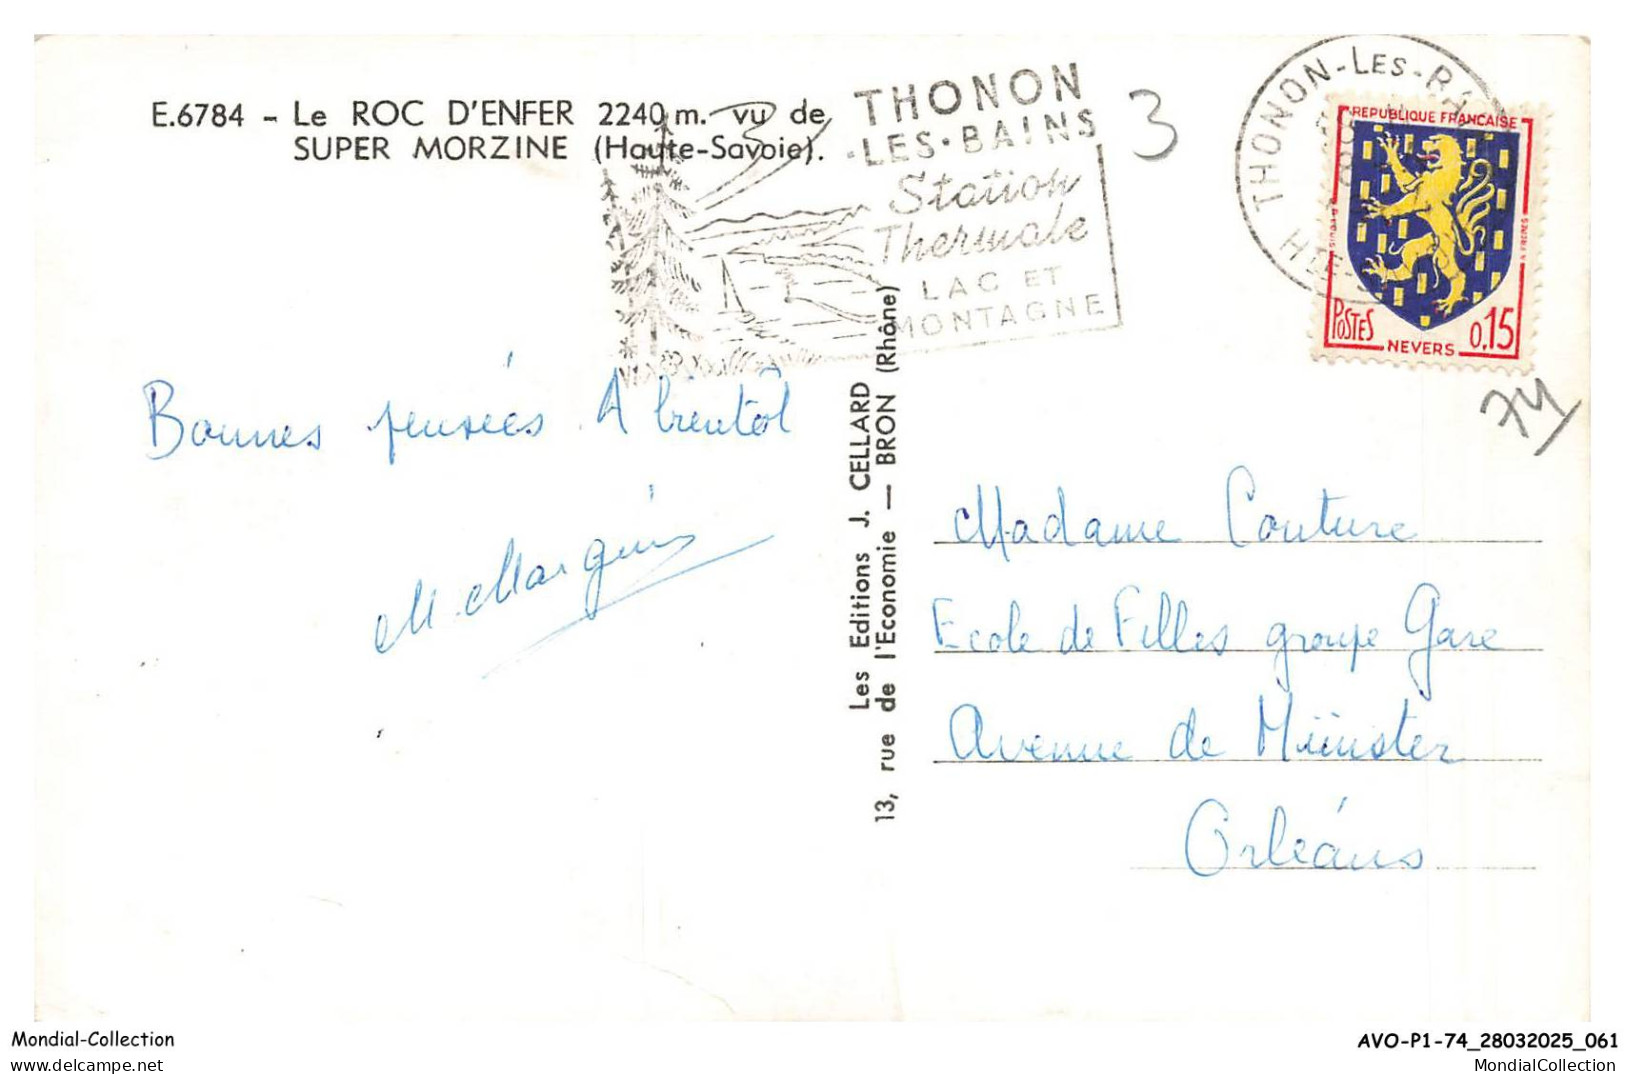 E.6784 - Le ROC D'ENFER 2240 m. vu de
SUPER MORZINE (Haute-Savoie).
THONON
-LES-BAINS
Station
Thermale
LAC ET
MONTAGNE
3
THONON-LES-BA
HTE
REPUBLIQUE FRANÇAISE
POSTES
0,15
NEVERS
74
Bonnes pensées. A bientôt
M. Marguis
Les Editions J. CELLARD
13, rue de l'Economie — BRON (Rhône)
Madame Couture
Ecole de Filles groupe Gare
Avenue de Münster
Orléans
Mondial-Collection
mondial-collection.delcampe.net
AVO-P1-74_28032025_061
MondialCollection